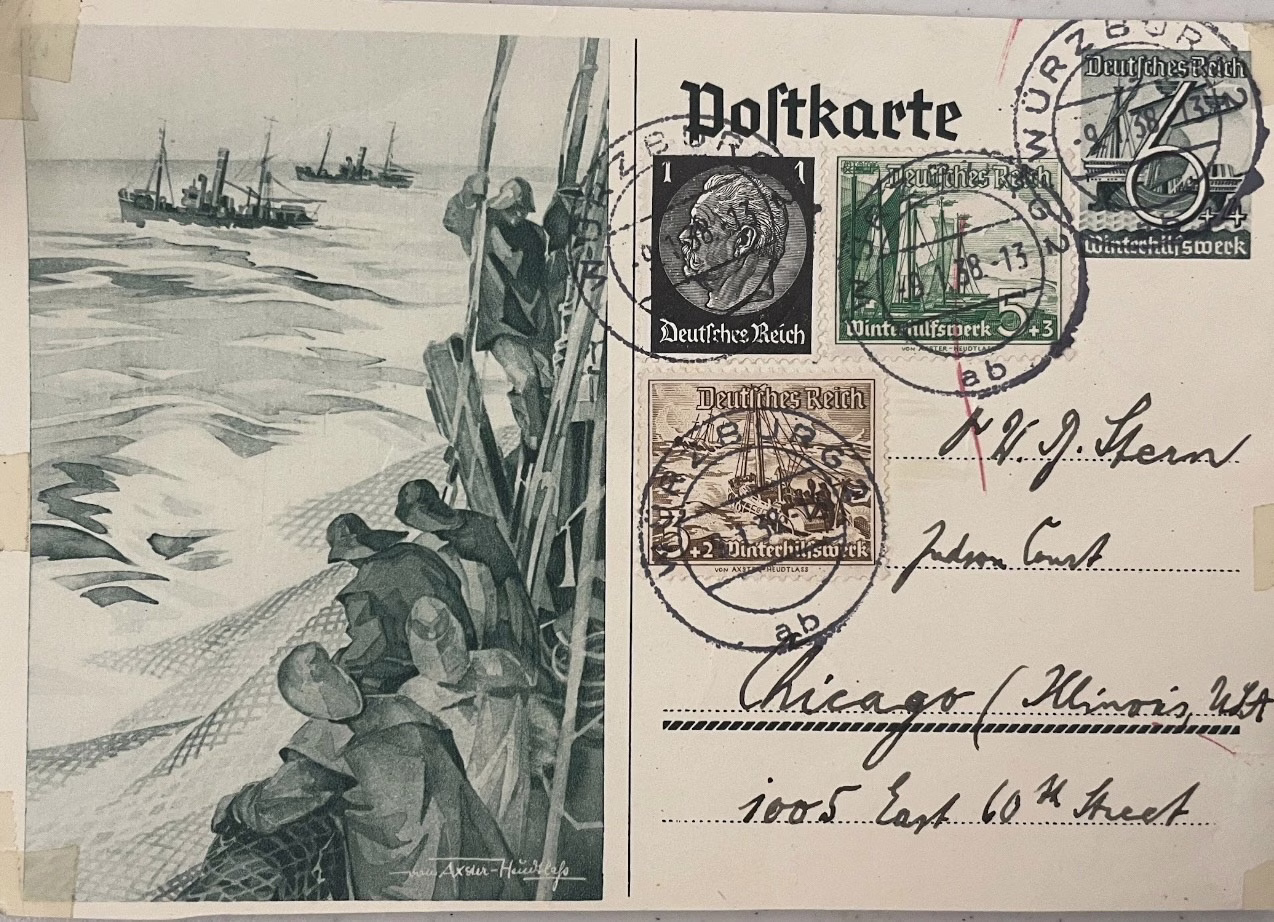 Postkarte
WÜRZBURG 2
-9.1.38.-13
Deutsches Reich
6+4
Winterhilfswerk
WÜRZBURG 2
1 1
Deutsches Reich
WÜRZBURG 2
-9.1.38.-13
ab
Deutsches Reich
Winterhilfswerk 5+3
VON AXSTER-HEUDTLASS
WÜRZBURG 2
ab
Deutsches Reich
3+2 Winterhilfswerk
VON AXSTER-HEUDTLASS
W. J. Stern
Judson Court
Chicago (Illinois, USA
1005 East 60th Street
von Axster-Heudtlaß